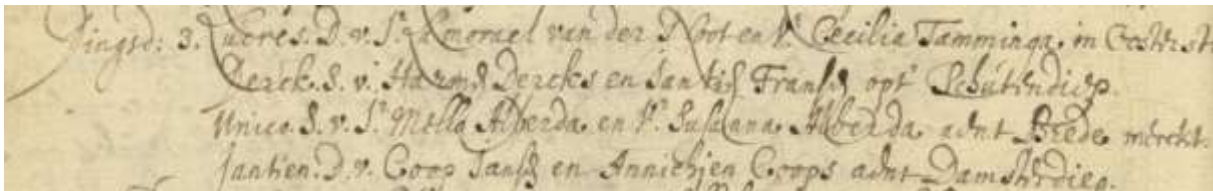 Dingsd: 3. Lucres. D. v. Jr. Lamorael van der Noot en Jr. Cecilia Tamminga, in Oosterst
Derck. S. v. Harmen Dercks en Jantien Franssen opt Schutendiep.
Unico. S. v. Jr. Mello Alberda, en Jr. Susanna Alberda, aent Brede merckt.
Jantien. D. v. Coop Janssen en Annichjen Coops aent Damsterdiep.